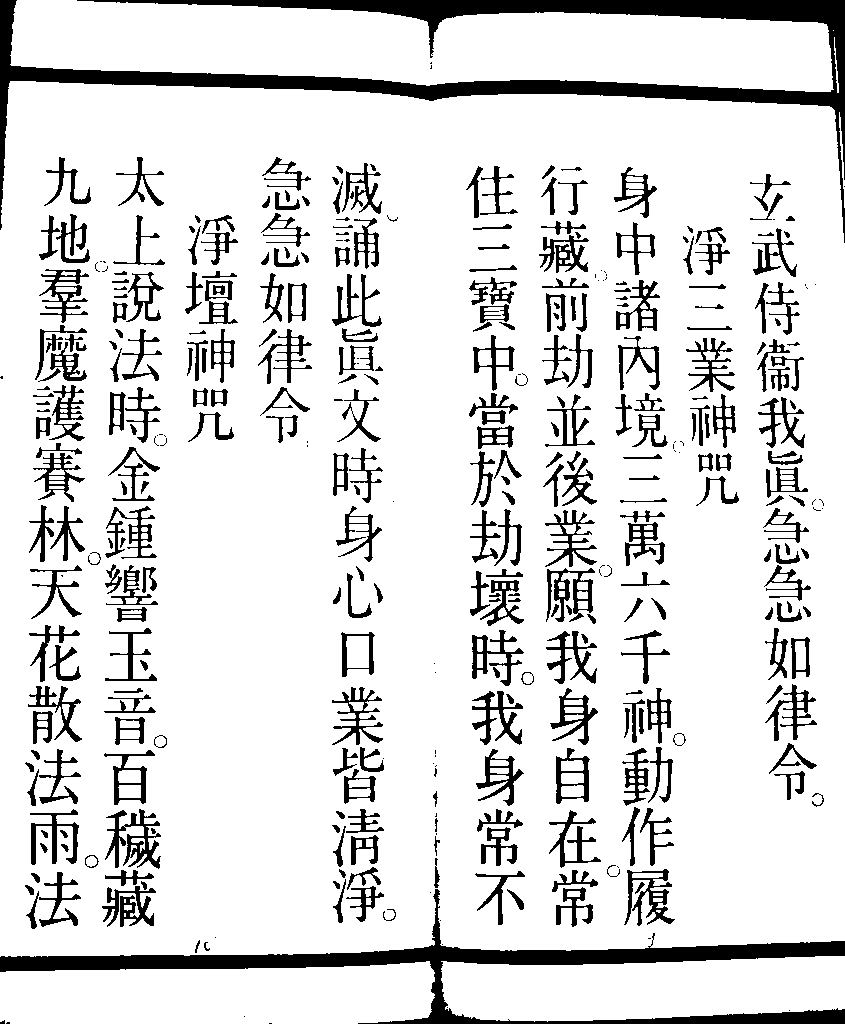 玄武侍衞我眞。急急如律令。
淨三業神咒
身中諸內境。三萬六千神。動作履
行藏。前劫並後業。願我身自在。常
住三寶中。當於劫壞時。我身常不
滅。誦此眞文時身心口業皆清淨。
急急如律令
淨壇神咒
太上說法時。金鍾響玉音。百穢藏
九地。羣魔護騫林。天花散法雨。法